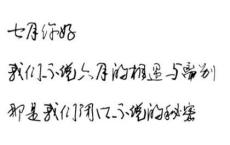 七月你好
我们不说六月的相遇与离别
那是我们闭口不说的秘密